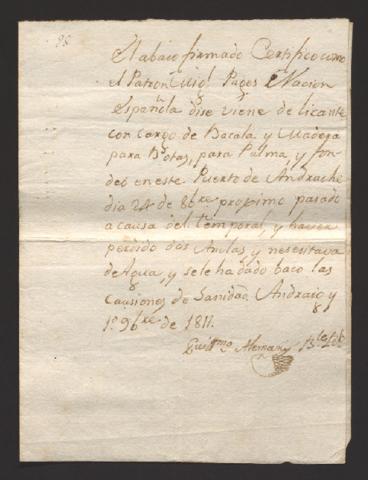 El abajo firmado Certifico como
el Patron Migl. Pages Nacion
Española dise viene de licante
con cargo de Bacala y Madera
para Botas, para Palma, y fon-
deo en este Puerto de Andrache
dia 24 de 8bre proximo pasado
a causa del temporal y haver
perdido dos Anclas y nesesitava
de Agua, y se le ha dado baco las
Causiones de Sanidad. Andraig y
1º 9bre de 1811.
Guillmo Alemany